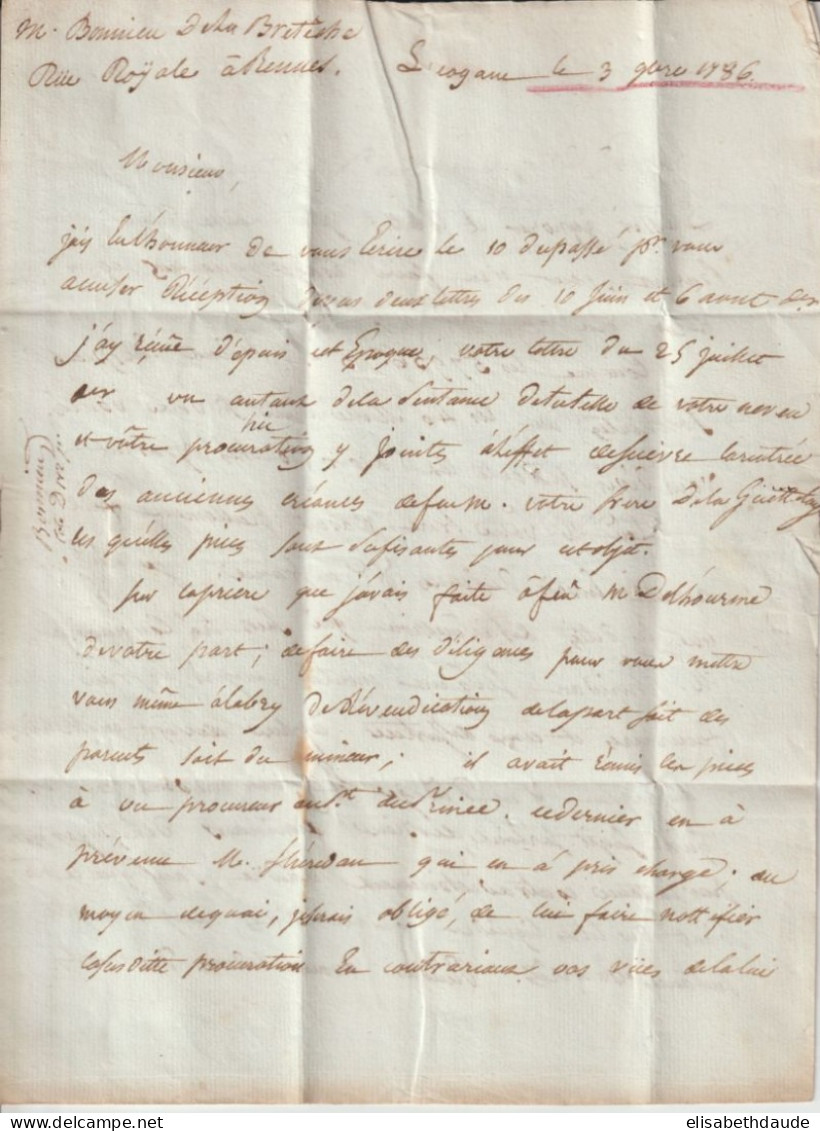 M. Bonnieu De la Bretèche
Rüe Royale à Rennes.
Leogane le 3 9bre 1786.
Monsieur,
j'ais Eu l'honneur de vous Ecrire le 10 du passé pr. vous
accuser Réception de vos deux lettres des 10 Juin et 6 aout der
j'ay reçüe d'epuis cet Epoque, votre lettre du 25 juillet
der un autant de la Sentance de tutelle de votre neveu
et vôtre procuration y jointes à l'effet de suivre la rentrée
des anciennes créances de feu M. votre frere De la
les quelles pieces sont sufisantes pour cet objet.
par que j'avais faite à feu M Delhourme
de votre part; de faire des diligences pour vous mettre
vous même à l'abry De Révendications de la part soit des
parents soit du mineur; il avait remis les pieces
à un procureur au Pt. au Prince. ce dernier en à
prévenu M. Shéridan qui en à pris charge. au
moyen de quoi, je serais obligé, de lui faire nottifier
la susditte procuration En contrariant vos vües de la lui
elisabethdaude